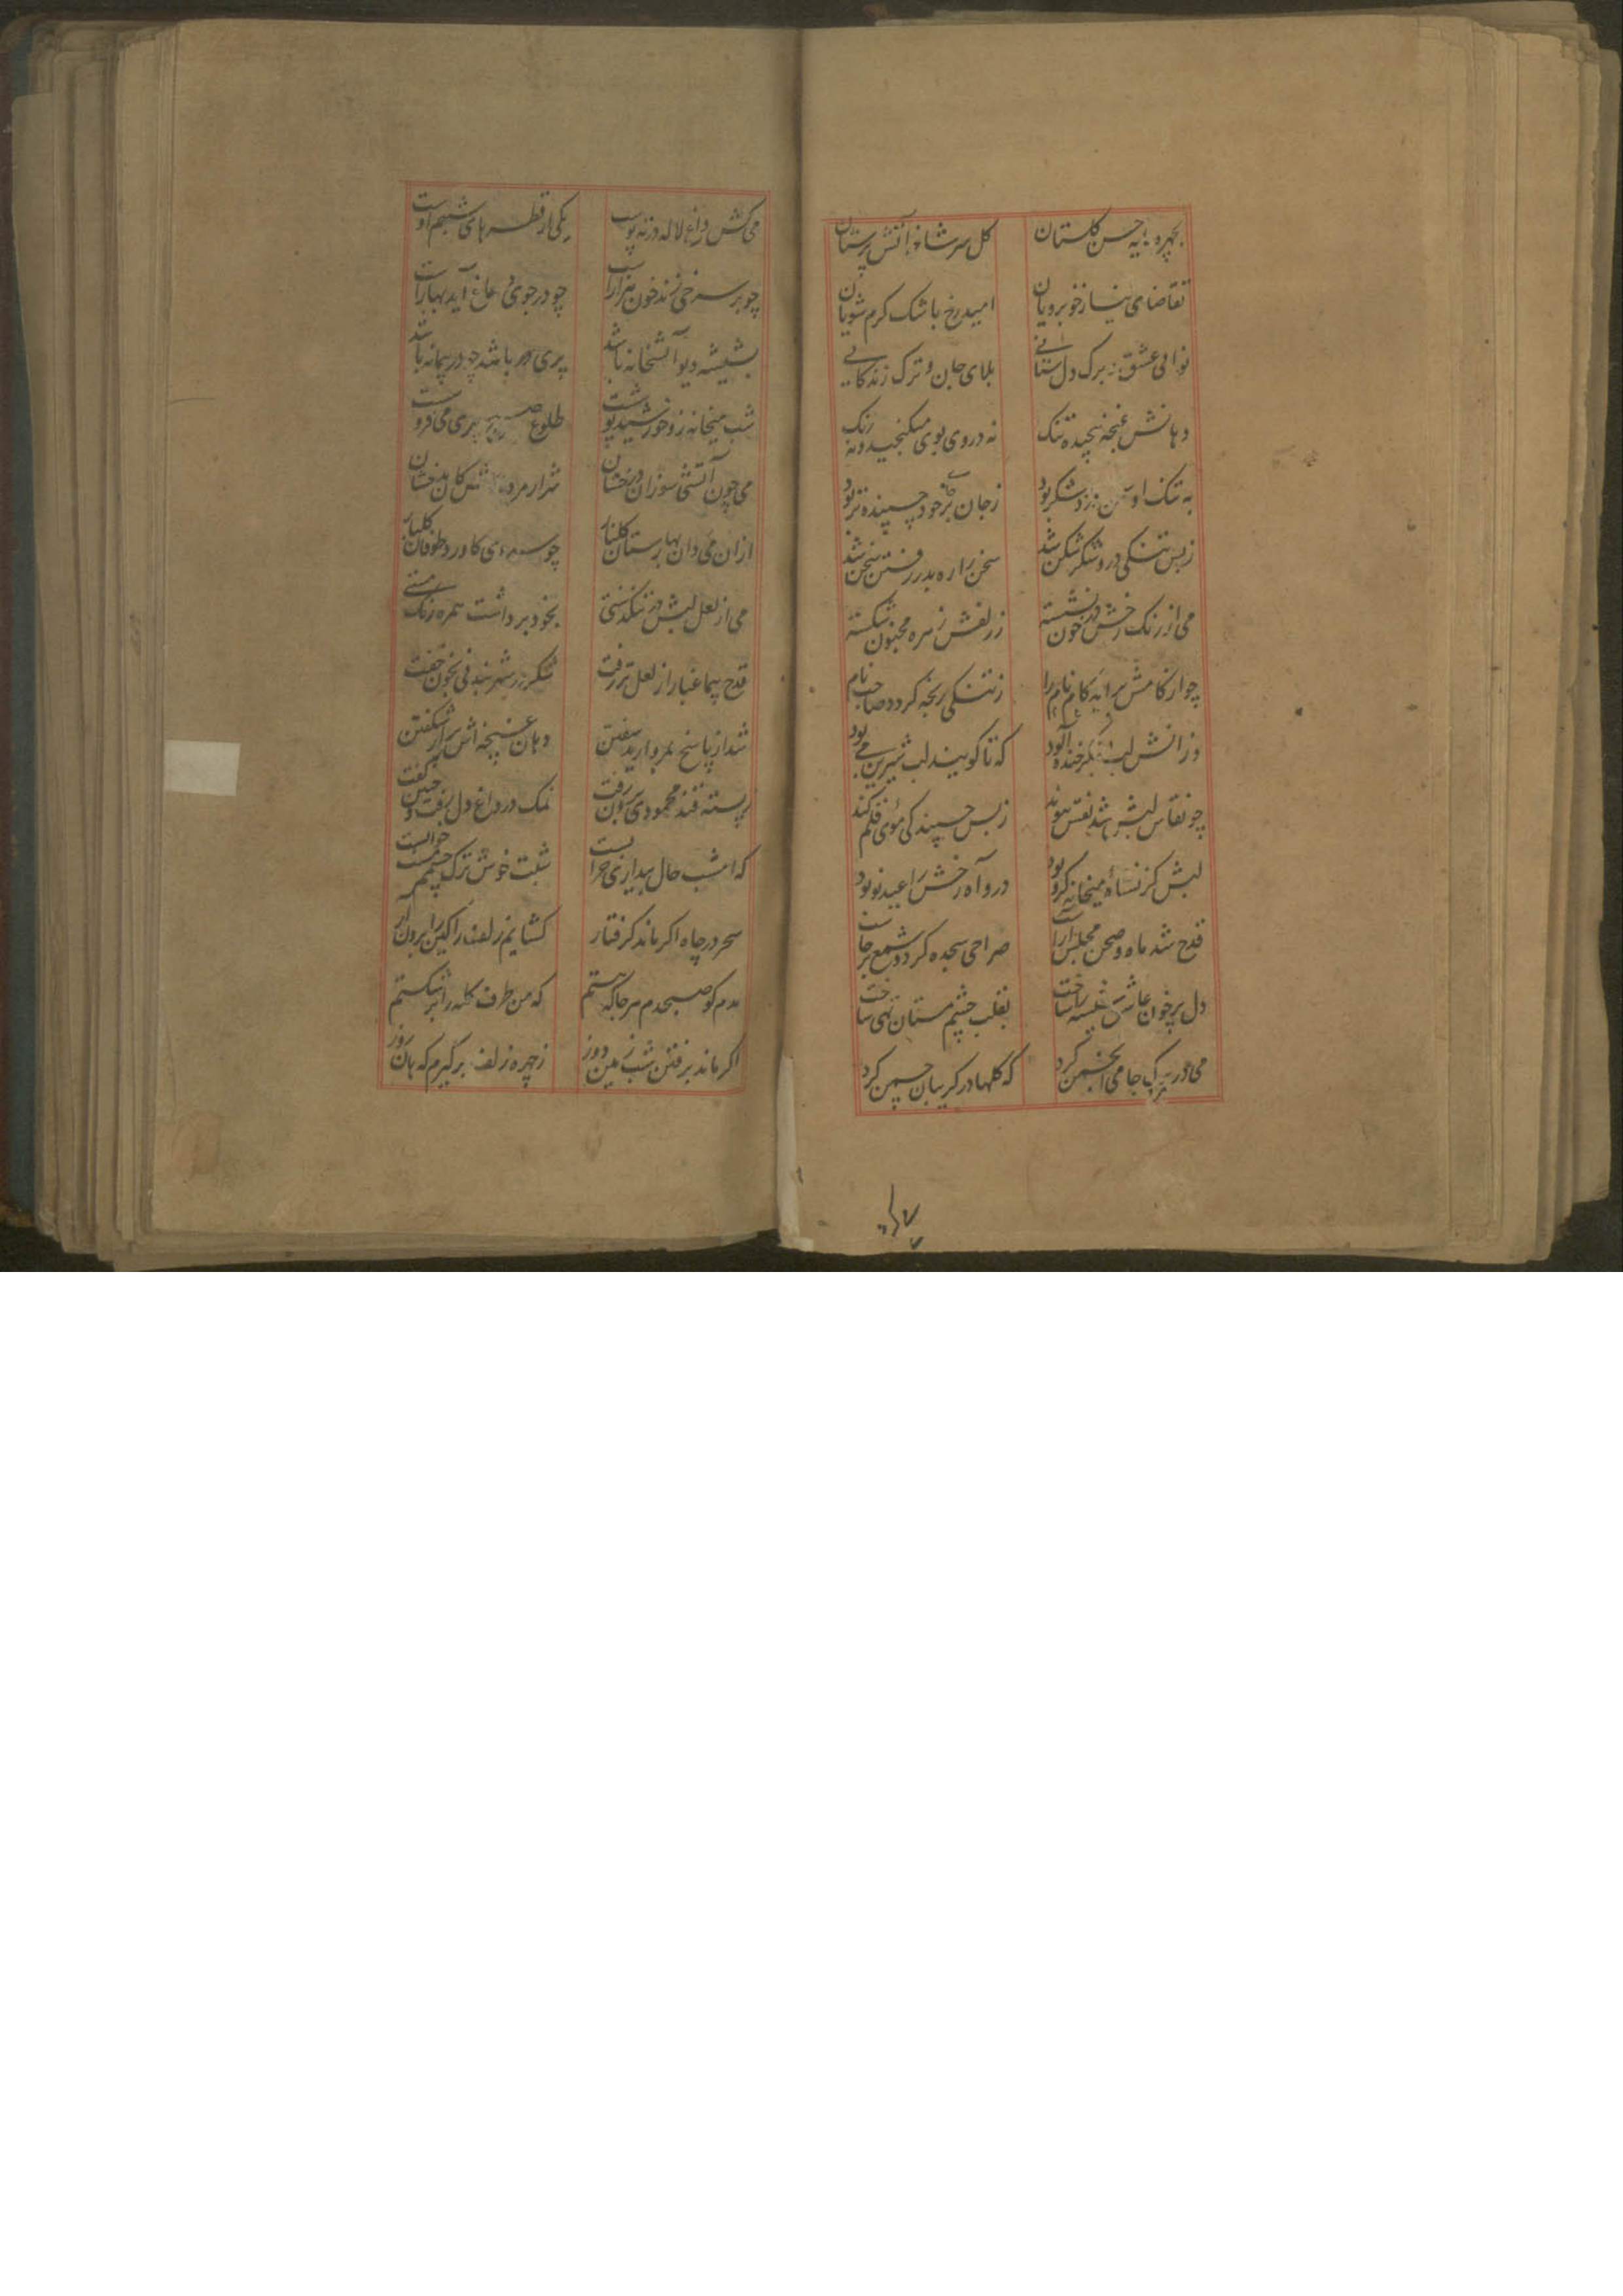 بچهره حسن کلستان کل سرشاخ آتش پرستان
تقاضای نیاز خوبرویان امید رخ باشک کرم شویان
نوای عشق برک دل ستانی بلای جان و ترک زندکانی
دهانش غنچه پیچیده تنک نه در وی بوی میکنجید و نه رنک
به تنک او شکر بود ز جان بر خود چسپنده تر بود
ز بس تنکی درو شکر شکن شد سخن را ره بدر رفتن سخن شد
می از رنک رخش در خون نشسته ز زلفش زهره مجنون شکسته
چو از کامش براید کام نام را ز تنکی رنجه کردد صاحب نام
وزانش لب خنده آلود که تا کویند لب شیرین می بود
چو نقاش لبش شد نقش پیوند ز بس چسپندکی موی قلم کند
لبش کز نشاه میخانه کرو بود درو آه رخش را عید نو بود
قدح شد ماه و صحن مجلس آراست صراحی سجده کرد و شمع برخاست
دل پرخون عاشق شیشه ساخت بقلب چشم مستان تهی ساخت
می در برک جامی انجمن کرد که کلها در کریبان چمن کرد
می کش داغ لاله در ته پوست یکی از قطره های شبنم اوست
چو بر سرخی زند خون هزارانت چو در جوی دماغ آید بهارانت
بشیشه دیو آتشخانه باشد پری باشد چو در پیمانه باشد
شب میخانه زو خورشید پوشت طلوع پری می فروشت
می چون آتشی سوزان درخشان شرار مرده کان بدخشان
از آن می دان بهارستان کلنار چو کاورد طوفان کلبار
می از لعل لبش در تنکدستی بخود برداشت همره رنک مستی
قدح پیما غبار از لعل تر رفت شکر در شهر بندی بخون خفت
شد از پاسخ بمروارید سفتن دهان غنچه اش پر از شکفتن
ز پسته قند محمودی برون رفت نمک در داغ دل برفت و چنین کفت
که امشب حال بیداری خرابست شبت خوش ترک چشمم مست خوابست
سحر در چاه اکر ماند کرفتار کشایم زلف را کین را برون آر
مدم کو صبحدم هرجا که هستم که من طرف کله را برشکستم
اکر ماند برفتن شب زمین دوز ز چهره زلف برکیرم که هان روز